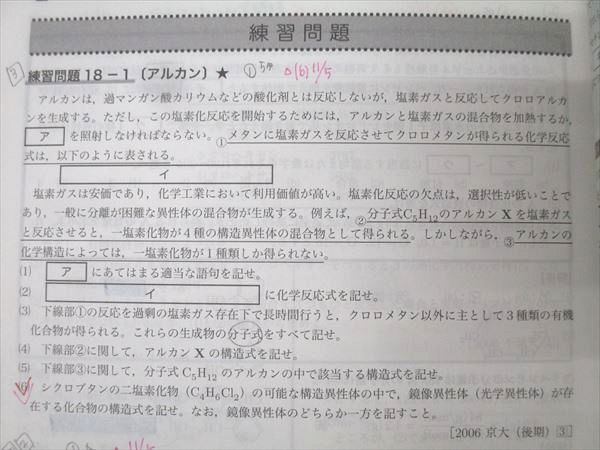 練習問題
3 練習問題18-1〔アルカン〕★ ① 5/4 △(6) 11/5
アルカンは,過マンガン酸カリウムなどの酸化剤とは反応しないが,塩素ガスと反応してクロロアルカ
ンを生成する。ただし,この塩素化反応を開始するためには,アルカンと塩素ガスの混合物を加熱するか,
ア を照射しなければならない。①メタンに塩素ガスを反応させてクロロメタンが得られる化学反応
式は,以下のように表される。
イ
塩素ガスは安価であり,化学工業において利用価値が高い。塩素化反応の欠点は,選択性が低いことで
あり,一般に分離が困難な異性体の混合物が生成する。例えば,②分子式C₅H₁₂のアルカンXを塩素ガス
と反応させると,一塩素化物が4種の構造異性体の混合物として得られる。しかしながら,③アルカンの
化学構造によっては,一塩素化物が1種類しか得られない。
(1) ア にあてはまる適当な語句を記せ。
(2) イ に化学反応式を記せ。
(3) 下線部①の反応を過剰の塩素ガス存在下で長時間行うと,クロロメタン以外に主として3種類の有機
化合物が得られる。これらの生成物の分子式をすべて記せ。
(4) 下線部②に関して,アルカンXの構造式を記せ。
(5) 下線部③に関して,分子式C₅H₁₂のアルカンの中で該当する構造式を記せ。
(6) シクロブタンの二塩素化物(C₄H₆Cl₂)の可能な構造異性体の中で,鏡像異性体(光学異性体)が存
在する化合物の構造式を記せ。なお,鏡像異性体のどちらか一方を記すこと。
[2006 京大(後期)3]
11/5